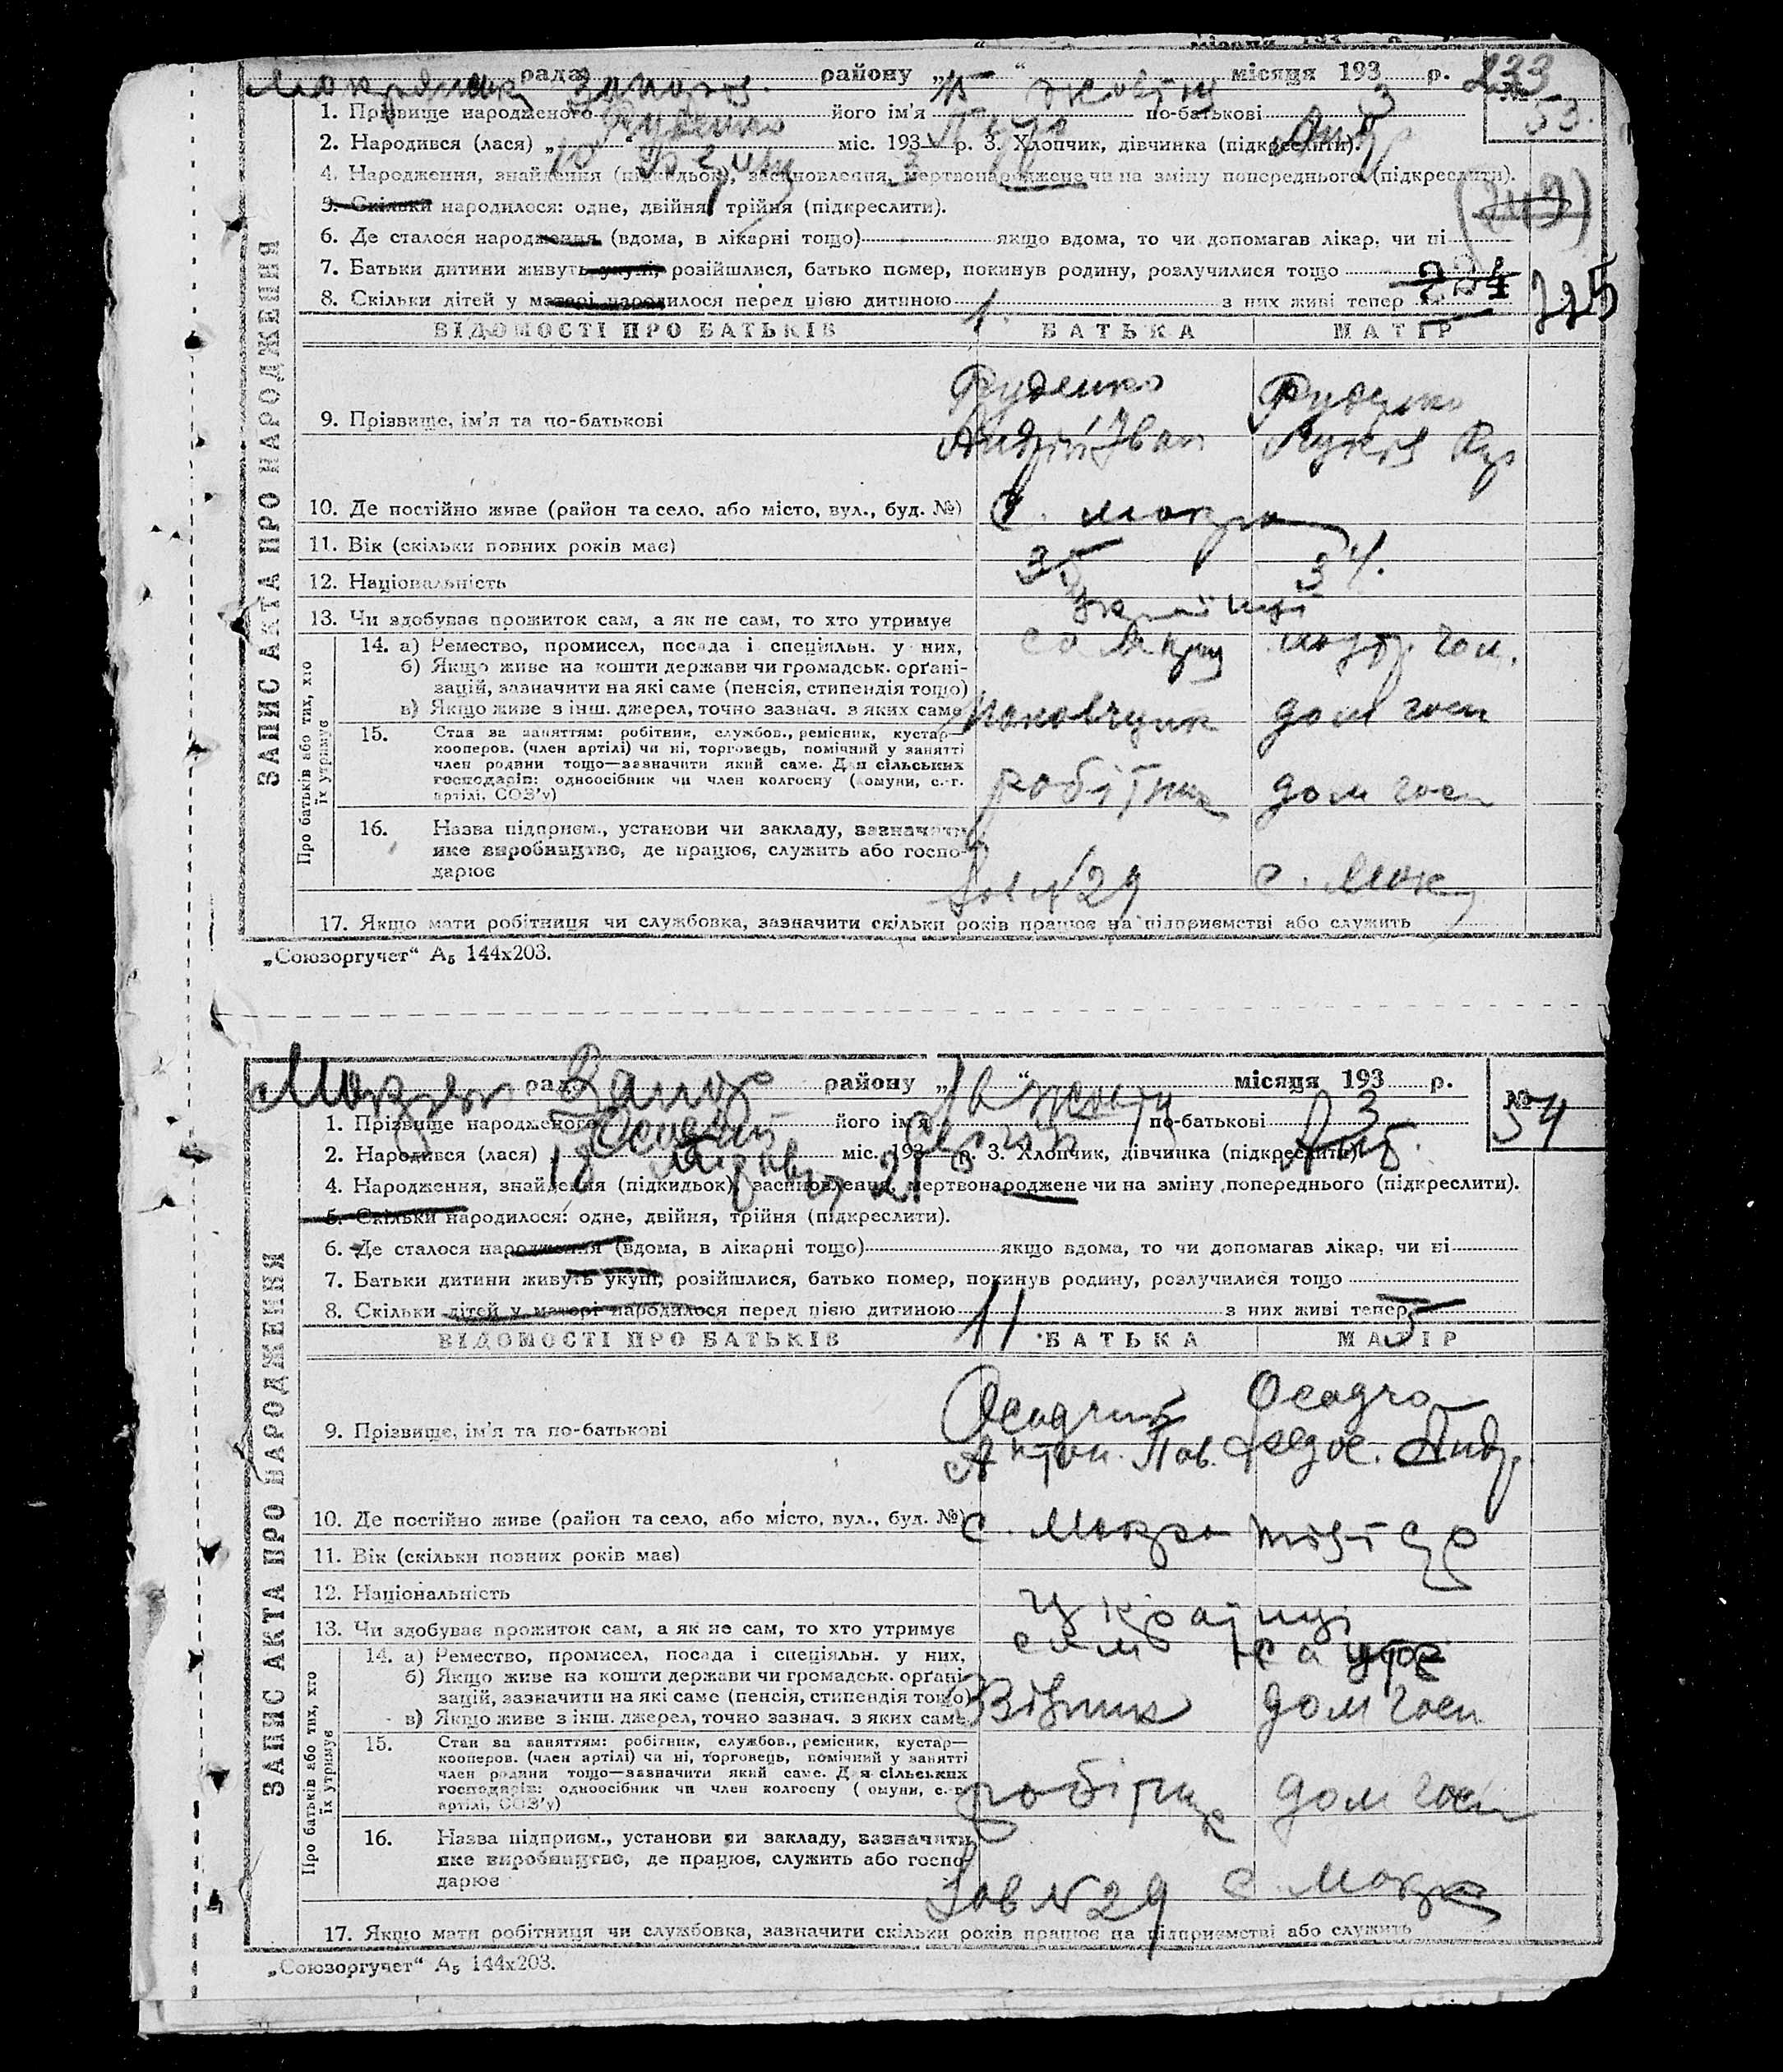 233
Мокрянськ рада Запоріз. району „15“ жовтня місяця 193 3 р.
53.
1. Прізвище народженого Руденко його ім'я по-батькові Андр
2. Народився (лася) „10 міс. 193 3 р. 3. Хлопчик, дівчинка (підкреслити).
4. Народження, знайдення (підкидьок), засиновлення, мертвонароджене чи на зміну попереднього (підкреслити).
(249)
5. Скільки народилося: одне, двійня, трійня (підкреслити).
6. Де сталося народження (вдома, в лікарні тощо) якщо вдома, то чи допомагав лікар, чи ні
7. Батьки дитини живуть укупі, розійшлися, батько помер, покинув родину, розлучилися тощо
224
225
8. Скільки дітей у матері народилося перед цією дитиною 1. з них живі тепер
ВІДОМОСТІ ПРО БАТЬКІВ БАТЬКА МАТІР
ЗАПИС АКТА ПРО НАРОДЖЕННЯ
9. Прізвище, ім'я та по-батькові Руденко Андрій Іван Руденко
10. Де постійно живе (район та село, або місто, вул., буд. №) с. Мокра
11. Вік (скільки повних років має) 35 34.
12. Національність
13. Чи здобуває прожиток сам, а як не сам, то хто утримує
Про батьків або тих, хто їх утримує
14. а) Ремество, промисел, посада і спеціяльн. у них,
б) Якщо живе на кошти держави чи громадськ. органі-
зацій, зазначити на які саме (пенсія, стипендія тощо)
в) Якщо живе з інш. джерел, точно зазнач. з яких саме дом госп
15. Стан за заняттям: робітник, службов., ремісник, кустар—
кооперов. (член артілі) чи ні, торговець, помічний у занятті
член родини тощо—зазначити який саме. Для сільських
господарів: одноосібник чи член колгоспу (комуни, с.-г.
артілі, СОЗ'у) робітник дом госп
16. Назва підприєм., установи чи закладу, зазначити
яке виробництво, де працює, служить або госпо-
дарює Зав N 29 с. Мок
17. Якщо мати робітниця чи службовка, зазначити скільки років працює на підприємстві або служить
„Союзоргучет“ А5 144x203.
Мокрян рада Запор району „16“ жовтн місяця 193 3 р.
№ 54
1. Прізвище народженого Осадчий його ім'я Сергій по-батькові Ант.
2. Народився (лася) 18 міс. 193 р. 3. Хлопчик, дівчинка (підкреслити)
4. Народження, знайдення (підкидьок), засиновлення, мертвонароджене чи на зміну попереднього (підкреслити).
5. Скільки народилося: одне, двійня, трійня (підкреслити).
6. Де сталося народження (вдома, в лікарні тощо) якщо вдома, то чи допомагав лікар, чи ні
7. Батьки дитини живуть укупі, розійшлися, батько помер, покинув родину, розлучилися тощо
8. Скільки дітей у матері народилося перед цією дитиною 11 з них живі тепер 5
ВІДОМОСТІ ПРО БАТЬКІВ БАТЬКА МАТІР
ЗАПИС АКТА ПРО НАРОДЖЕННЯ
9. Прізвище, ім'я та по-батькові Осадчий Антон. Пав. Осадча Федос. Андр.
10. Де постійно живе (район та село, або місто, вул., буд. №) с. Мокра
11. Вік (скільки повних років має)
12. Національність українці
13. Чи здобуває прожиток сам, а як не сам, то хто утримує сам
Про батьків або тих, хто їх утримує
14. а) Ремество, промисел, посада і спеціяльн. у них,
б) Якщо живе на кошти держави чи громадськ. органі-
зацій, зазначити на які саме (пенсія, стипендія тощо)
в) Якщо живе з інш. джерел, точно зазнач. з яких саме Візник дом госп
15. Стан за заняттям: робітник, службов., ремісник, кустар—
кооперов. (член артілі) чи ні, торговець, помічний у занятті
член родини тощо—зазначити який саме. Для сільських
господарів: одноосібник чи член колгоспу (комуни, с.-г.
артілі, СОЗ'у) робітник дом госп
16. Назва підприєм., установи чи закладу, зазначити
яке виробництво, де працює, служить або госпо-
дарює Зав N 29 с. Мокра
17. Якщо мати робітниця чи службовка, зазначити скільки років працює на підприємстві або служить
„Союзоргучет“ А5 144x203.